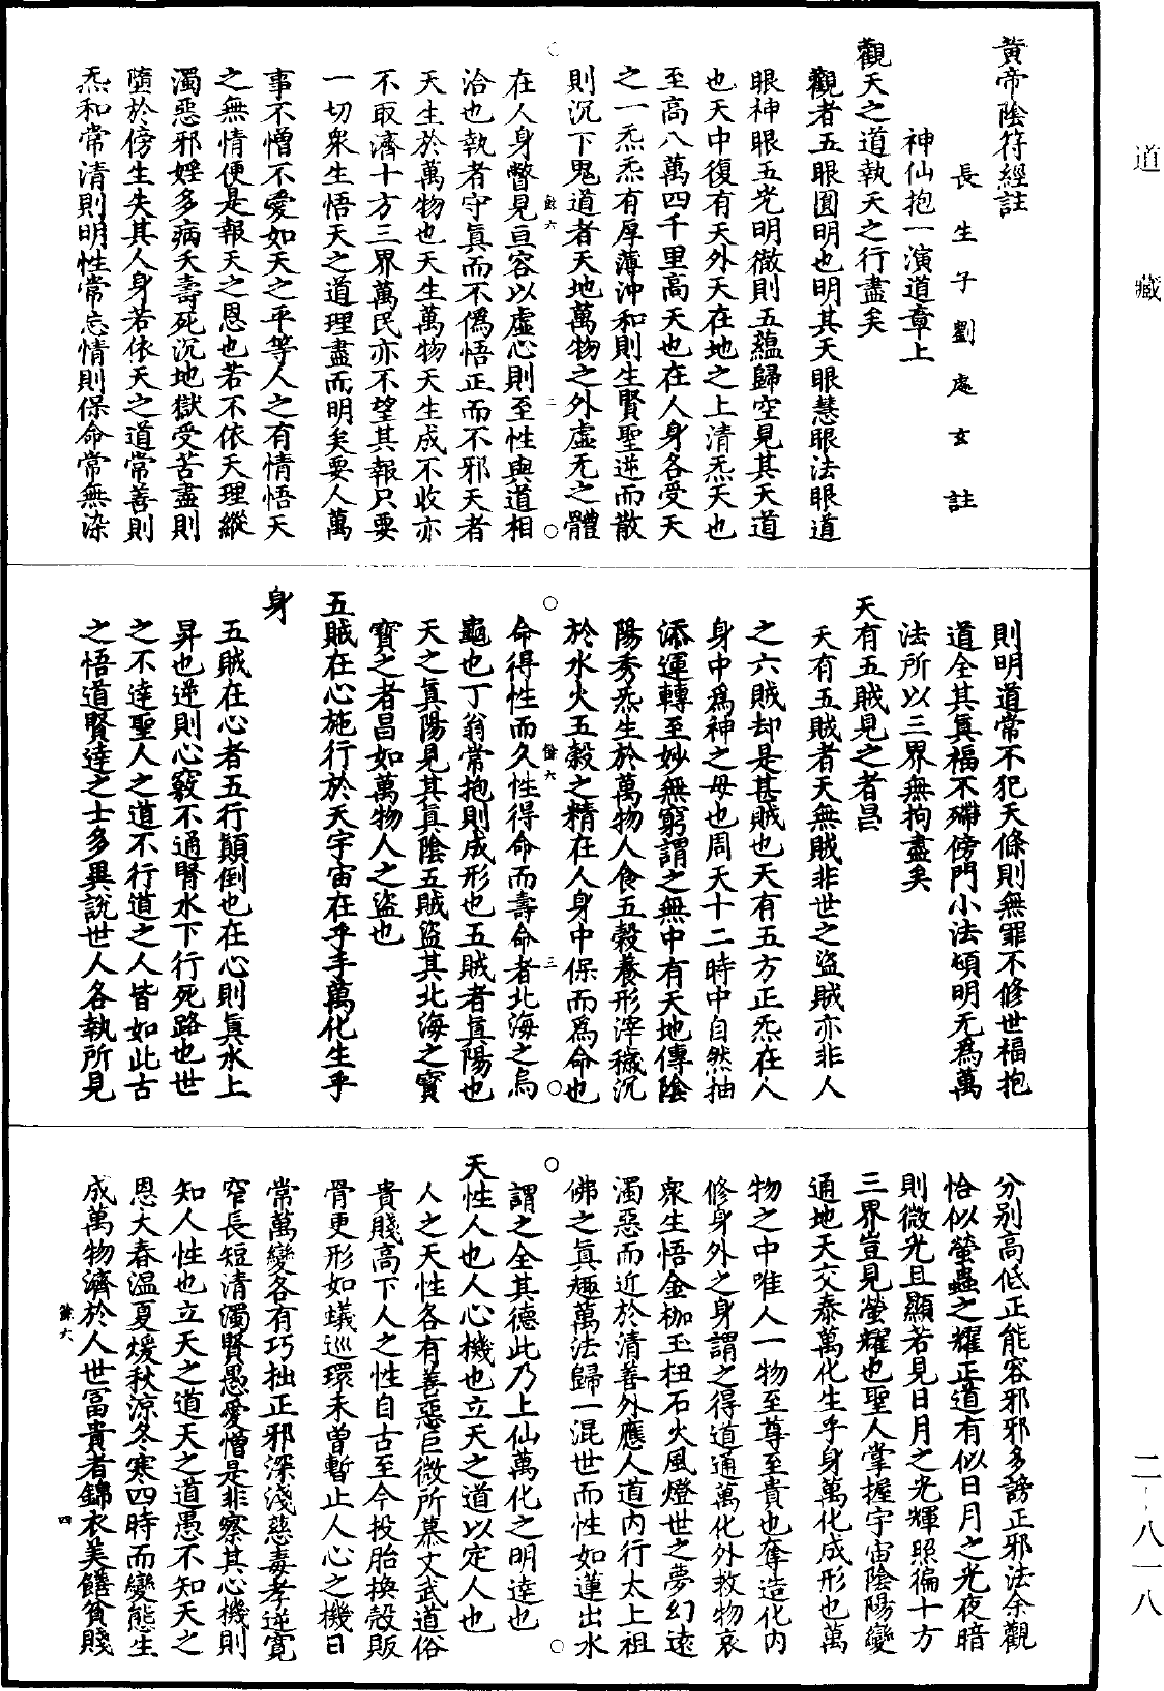 道藏
黃帝陰符經註
長生子劉處玄註
神仙抱一演道章上
觀天之道執天之行盡矣
觀者五眼圓明也明其天眼慧眼法眼道
眼神眼五光明徹則五蘊歸空見其天道
也天中復有天外天在地之上清炁天也
至高八萬四千里高天也在人身各受天
之一炁炁有厚薄沖和則生賢聖逆而散
則沉下鬼道者天地萬物之外虛无之體
餘六 二
在人身瞥見亘容以虛心則至性與道相
洽也執者守眞而不僞悟正而不邪天者
天生於萬物也天生萬物天生成不收亦
不取濟十方三界萬民亦不望其報只要
一切衆生悟天之道理盡而明矣要人萬
事不憎不愛如天之平等人之有情悟天
之無情便是報天之恩也若不依天理縱
濁惡邪婬多病夭壽死沉地獄受苦盡則
墮於傍生失其人身若依天之道常善則
炁和常清則明性常忘情則保命常無染
則明道常不犯天條則無罪不修世福抱
道全其眞福不殢傍門小法頓明无爲萬
法所以三界無拘盡矣
天有五賊見之者昌
天有五賊者天無賊非世之盜賊亦非人
之六賊却是甚賊也天有五方正炁在人
身中爲神之母也周天十二時中自然抽
添運轉至妙無窮謂之無中有天地傳陰
陽秀炁生於萬物人食五穀養形滓穢沉
於水火五穀之精在人身中保而爲命也
餘六 三
命得性而久性得命而壽命者北海之烏
龜也丁翁常抱則成形也五賊者眞陽也
天之眞陽見其眞陰五賊盜其北海之寶
寶之者昌如萬物人之盜也
五賊在心施行於天宇宙在乎手萬化生乎
身
五賊在心者五行顛倒也在心則眞水上
昇也逆則心竅不通腎水下行死路也世
之不達聖人之道不行道之人皆如此古
之悟道賢達之士多異說世人各執所見
分别高低正能容邪邪多謗正邪法余觀
恰似螢蟲之耀正道有似日月之光夜暗
則微光且顯若見日月之光輝照徧十方
三界豈見螢耀也聖人掌握宇宙陰陽變
通地天交泰萬化生乎身萬化成形也萬
物之中唯人一物至尊至貴也奪造化内
修身外之身謂之得道通萬化外救物哀
衆生悟金枷玉杻石火風燈世之夢幻遠
濁惡而近於清善外應人道内行太上祖
佛之眞趣萬法歸一混世而性如蓮出水
謂之全其德此乃上仙萬化之明達也
天性人也人心機也立天之道以定人也
人之天性各有善惡巨微所慕文武道俗
貴賤高下人之性自古至今投胎換殼販
骨更形如蟻巡環未曾暫止人心之機日
常萬變各有巧拙正邪深淺慈毒孝逆寬
窄長短清濁賢愚愛憎是非察其心機則
知人性也立天之道天之道愚不知天之
恩大春温夏煖秋涼冬寒四時而變態生
成萬物濟於人世冨貴者錦衣美饍貧賤
餘六 四
二-八一八